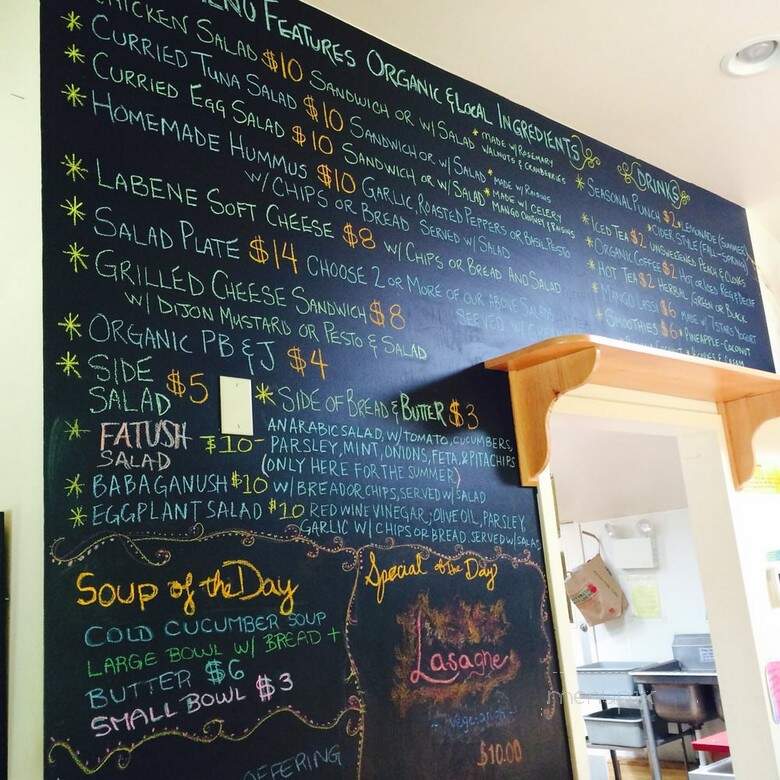 MENU FEATURES ORGANIC & LOCAL INGREDIENTS
CHICKEN SALAD $10 SANDWICH OR W/ SALAD * MADE W/ ROSEMARY
WALNUTS & CRANBERRIES
CURRIED TUNA SALAD $10 SANDWICH OR W/ SALAD * MADE W/ RAISINS
CURRIED EGG SALAD $10 SANDWICH OR W/ SALAD * MADE W/ CELERY
MANGO CHUTNEY & RAISINS
HOMEMADE HUMMUS $10 GARLIC, ROASTED PEPPERS OR BASIL PESTO
W/ CHIPS OR BREAD SERVED W/ SALAD
LABENE SOFT CHEESE $8 W/ CHIPS OR BREAD AND SALAD
SALAD PLATE $14 CHOOSE 2 OR MORE OF OUR ABOVE SALADS
SERVED W/
GRILLED CHEESE SANDWICH $8
W/ DIJON MUSTARD OR PESTO & SALAD
ORGANIC PB & J $4
SIDE
SALAD $5
* SIDE OF BREAD & BUTTER $3
FATUSH $10- AN ARABIC SALAD, W/ TOMATO, CUCUMBERS,
SALAD PARSLEY, MINT, ONIONS, FETA, & PITA CHIPS
(ONLY HERE FOR THE SUMMER)
BABAGANUSH $10 W/ BREAD OR CHIPS, SERVED W/ SALAD
EGGPLANT SALAD $10 RED WINE VINEGAR, OLIVE OIL, PARSLEY,
GARLIC W/ CHIPS OR BREAD. SERVED W/ SALAD
DRINKS
SEASONAL PUNCH $2 * LEMONADE (SUMMER)
* CIDER STYLE (FALL-SPRING)
ICED TEA $2 UNSWEETENED PEACH & CLOVES
ORGANIC COFFEE $2 HOT OR ICED REG & DECAF
HOT TEA $2 HERBAL/GREEN OR BLACK
MANGO LASSI $6 MADE W/ 7 STARS YOGURT
SMOOTHIES $6 * PINEAPPLE-COCONUT
SOUP OF the DAY
COLD CUCUMBER SOUP
LARGE BOWL W/ BREAD +
BUTTER $6
SMALL BOWL $3
OFFERING
Special of the Day
Lasagne
vegetarian
$10.00